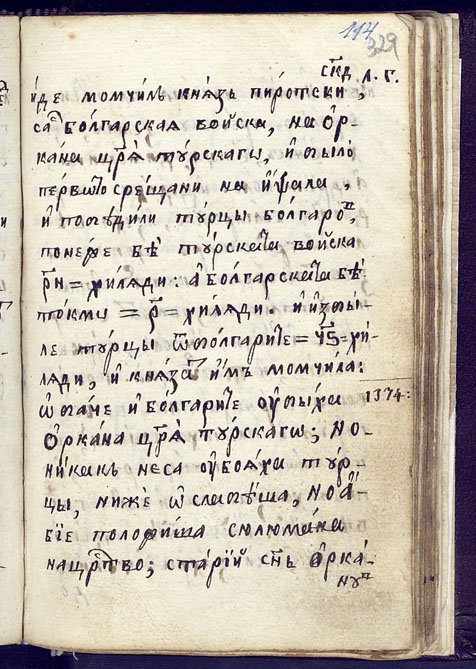 114
329
скд л. г.
иде момчилъ кнѧзь пиротски,
са болгарская войска, на ѻр-
кана црѧ турскагѡ, и было
первото срещани на ипсала,
и победили турцы болгаров,
понеже бѣ турската войска
рн = хилѧди: а болгарската бѣ
токмѡ = р = хилѧди. и изби-
ле турцы ѿ болгарите = чѕ = хи-
лѧди, и кнѧза имъ момчила:
ѡбаче и болгарите убиха 1374:
ѻркана црѧ турскагѡ; но
никакъ неса убоѧха тур-
цы, ниже ѡслабѣша, но а-
бїе положиша сюлюмана
на црство; старїй снъ ѻрка-
нув